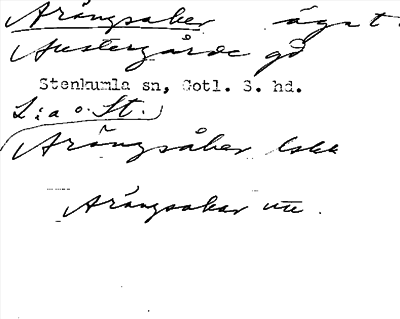 Arängsåker ägat.
Austergårde gd
Stenkumla sn, Gotl. S. hd.
L:a o. St.
Arängsåker
Arängsakar ute.